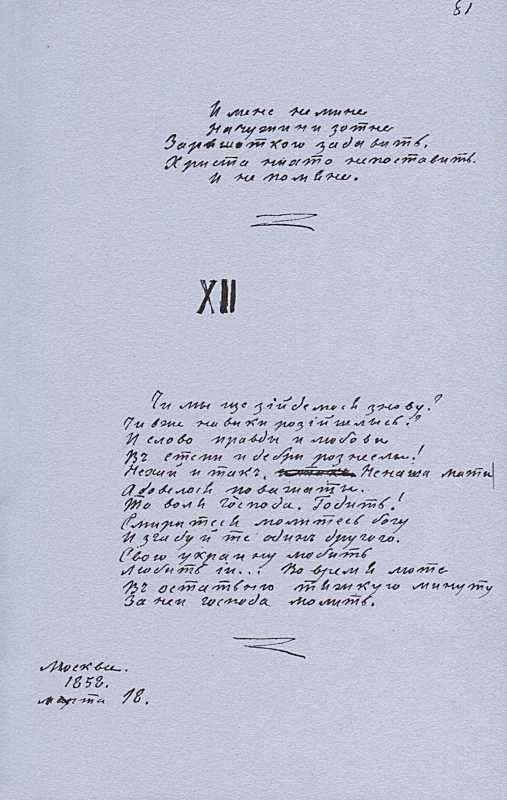 81
И мене не мине
На чужині зотне
За решоткою задавить.
Христа ніхто не поставить.
И не помяне.
XII
Чи мы ще зійдемося знову?
Чи вже навіки розійшлысь?
И слово правды и любови
Въ степи и дебри рознеслы!
Нехай и такъ. Не наша маты
А довелося поважаты.
То воля господа. Годить!
Смиритеся молитесь богу
И згадуйте одинъ другого.
Свою украину любить
Любить іи... Во время люте
Въ остатню тяжкую минуту
За неи господа молить.
Москва.
1858.
марта 18.